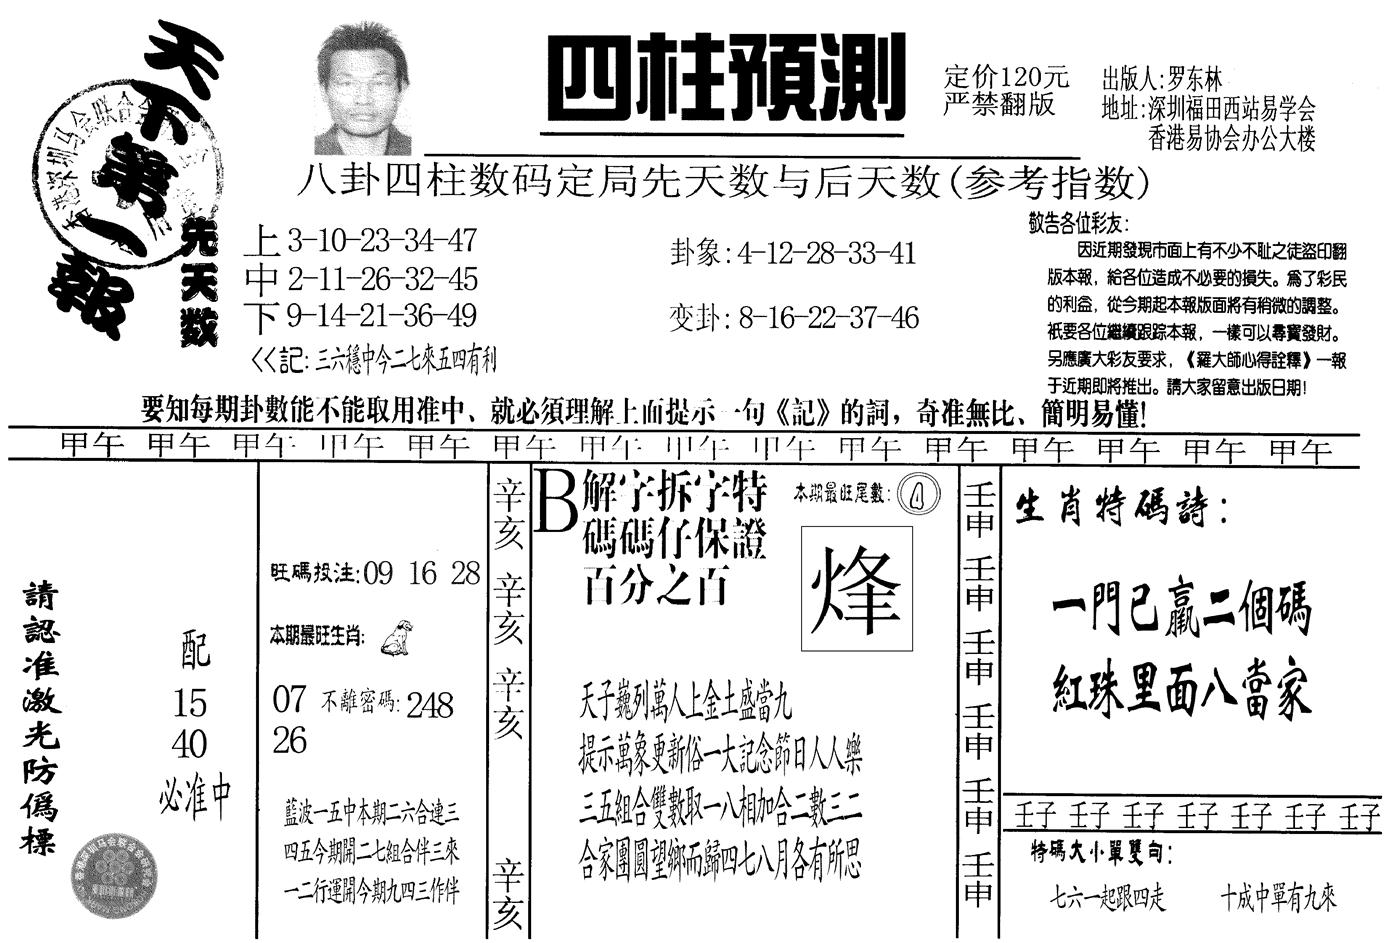 天下第一報
四柱預測
定价120元
严禁翻版
出版人:罗东林
地址:深圳福田西站易学会
香港易协会办公大楼
八卦四柱数码定局先天数与后天数(参考指数)
先天数
上 3-10-23-34-47
中 2-11-26-32-45
下 9-14-21-36-49
<<記: 三六穩中今二七來五四有利
卦象: 4-12-28-33-41
变卦: 8-16-22-37-46
敬告各位彩友:
因近期發現市面上有不少不耻之徒盜印翻
版本報，給各位造成不必要的損失。爲了彩民
的利益，從今期起本報版面將有稍微的調整。
衹要各位繼續跟踪本報，一樣可以尋寶發財。
另應廣大彩友要求，《羅大師心得詮釋》一報
于近期即將推出。請大家留意出版日期!
要知每期卦數能不能取用准中、就必須理解上面提示一句《記》的詞，奇准無比、簡明易懂!
甲午 甲午 甲午 甲午 甲午 甲午 甲午 甲午 甲午 甲午 甲午 甲午 甲午 甲午 甲午
請認准激光防僞標
配
15
40
必准中
旺碼投注: 09 16 28
本期最旺生肖:
07 不離密碼: 248
26
藍波一五中本期二六合連三
四五今期開二七組合伴三來
一二行運開今期九四三作伴
辛亥
辛亥
辛亥
辛亥
B 解字拆字特
碼碼仔保證
百分之百
本期最旺尾數:
烽
天子巍列萬人上金土盛當九
提示萬象更新俗一大記念節日人人樂
三五組合雙數取一八相加合二數三二
合家團圓望鄉而歸四七八月各有所思
壬申
壬申
壬申
壬申
壬申
壬申
生肖特碼詩:
一門已贏二個碼
紅珠里面八當家
壬子 壬子 壬子 壬子 壬子 壬子 壬子
特碼大小單雙句:
七六一起跟四走 十成中單有九來